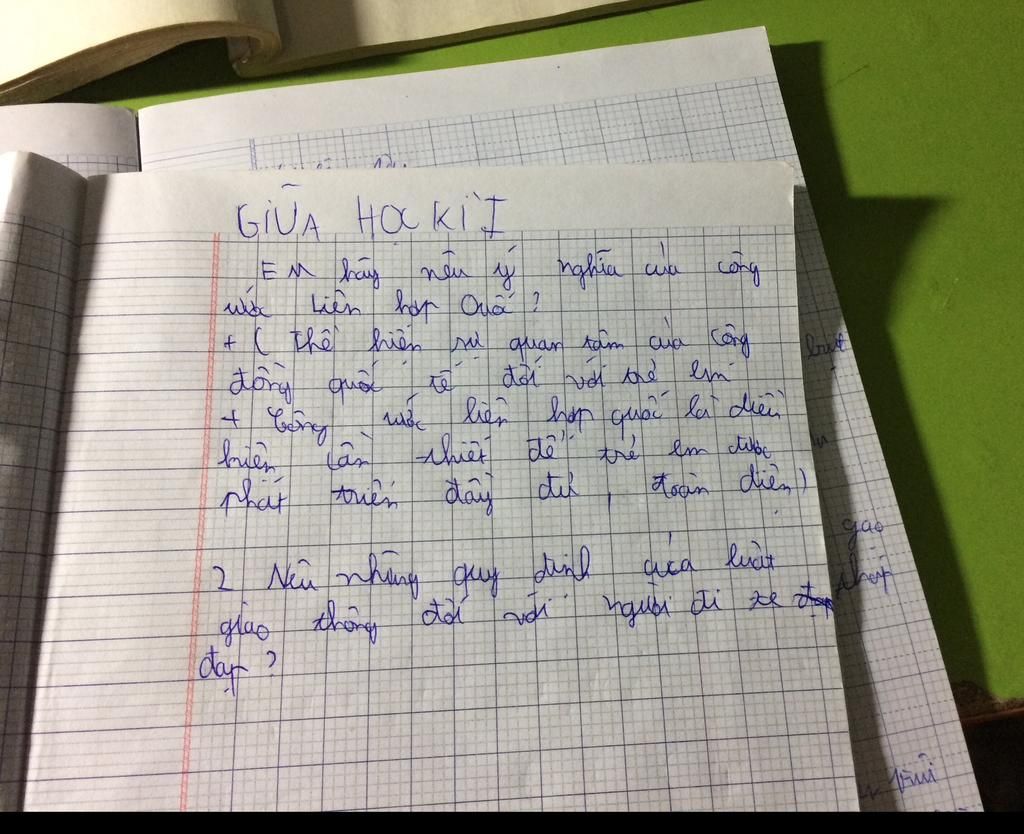 GIỮA HỌC KÌ I
EM hãy nêu ý nghĩa của công
ước Liên hợp Quốc?
+ ( Thể hiện sự quan tâm của cộng
đồng quốc tế đối với trẻ em
+ Công ước liên hợp quốc là điều
kiện cần thiết để trẻ em được
phát triển đầy đủ, toàn diện)
2 Nêu những quy định của luật
giao thông đối với người đi xe
đạp?
gạo